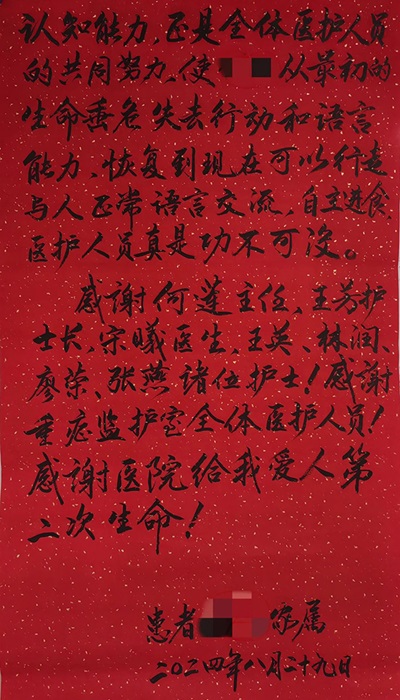 认知能力,正是全体医护人员
的共同努力。使 从最初的
生命垂危失去行动和语言
能力,恢复到现在可以行走
与人正常语言交流,自主进食,
医护人员真是功不可没。
感谢何莲主任,王芳护
士长,宋曦医生,王英、林润、
廖荣、张燕诸位护士!感谢
重症监护室全体医护人员!
感谢医院给我爱人第
二次生命!
患者 家属
二〇二四年八月二十九日